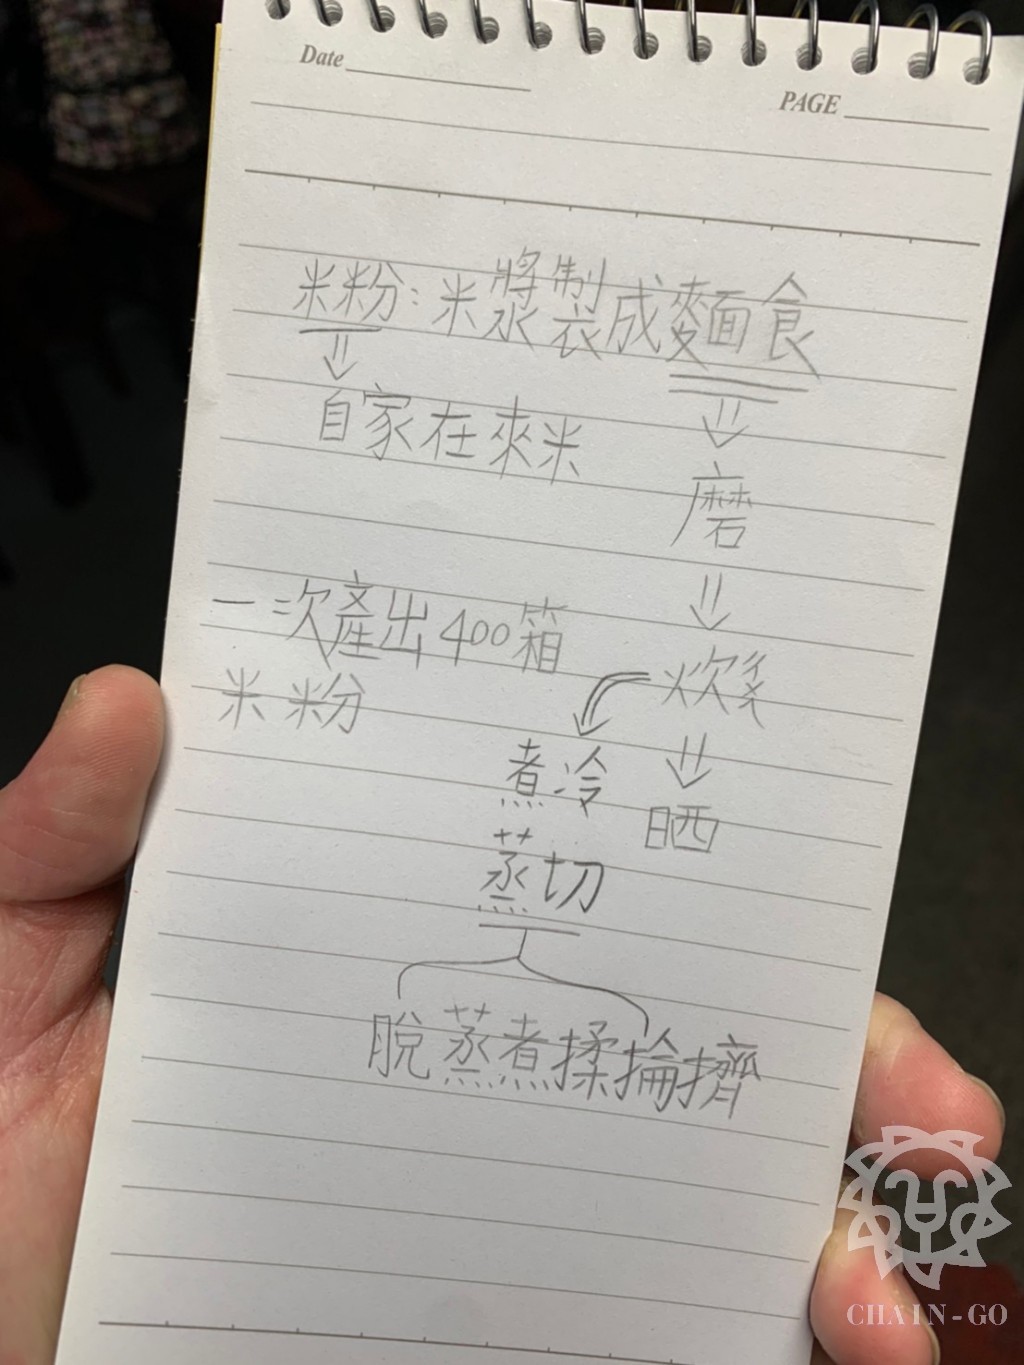 Date
PAGE
米粉:米漿製成麵食
⇓
⇓
自家在來米
磨
⇓
一次產出400箱
米粉
炊
⇓
煮冷
晒
蒸切
脫蒸煮揉掄擠
CHAIN-GO